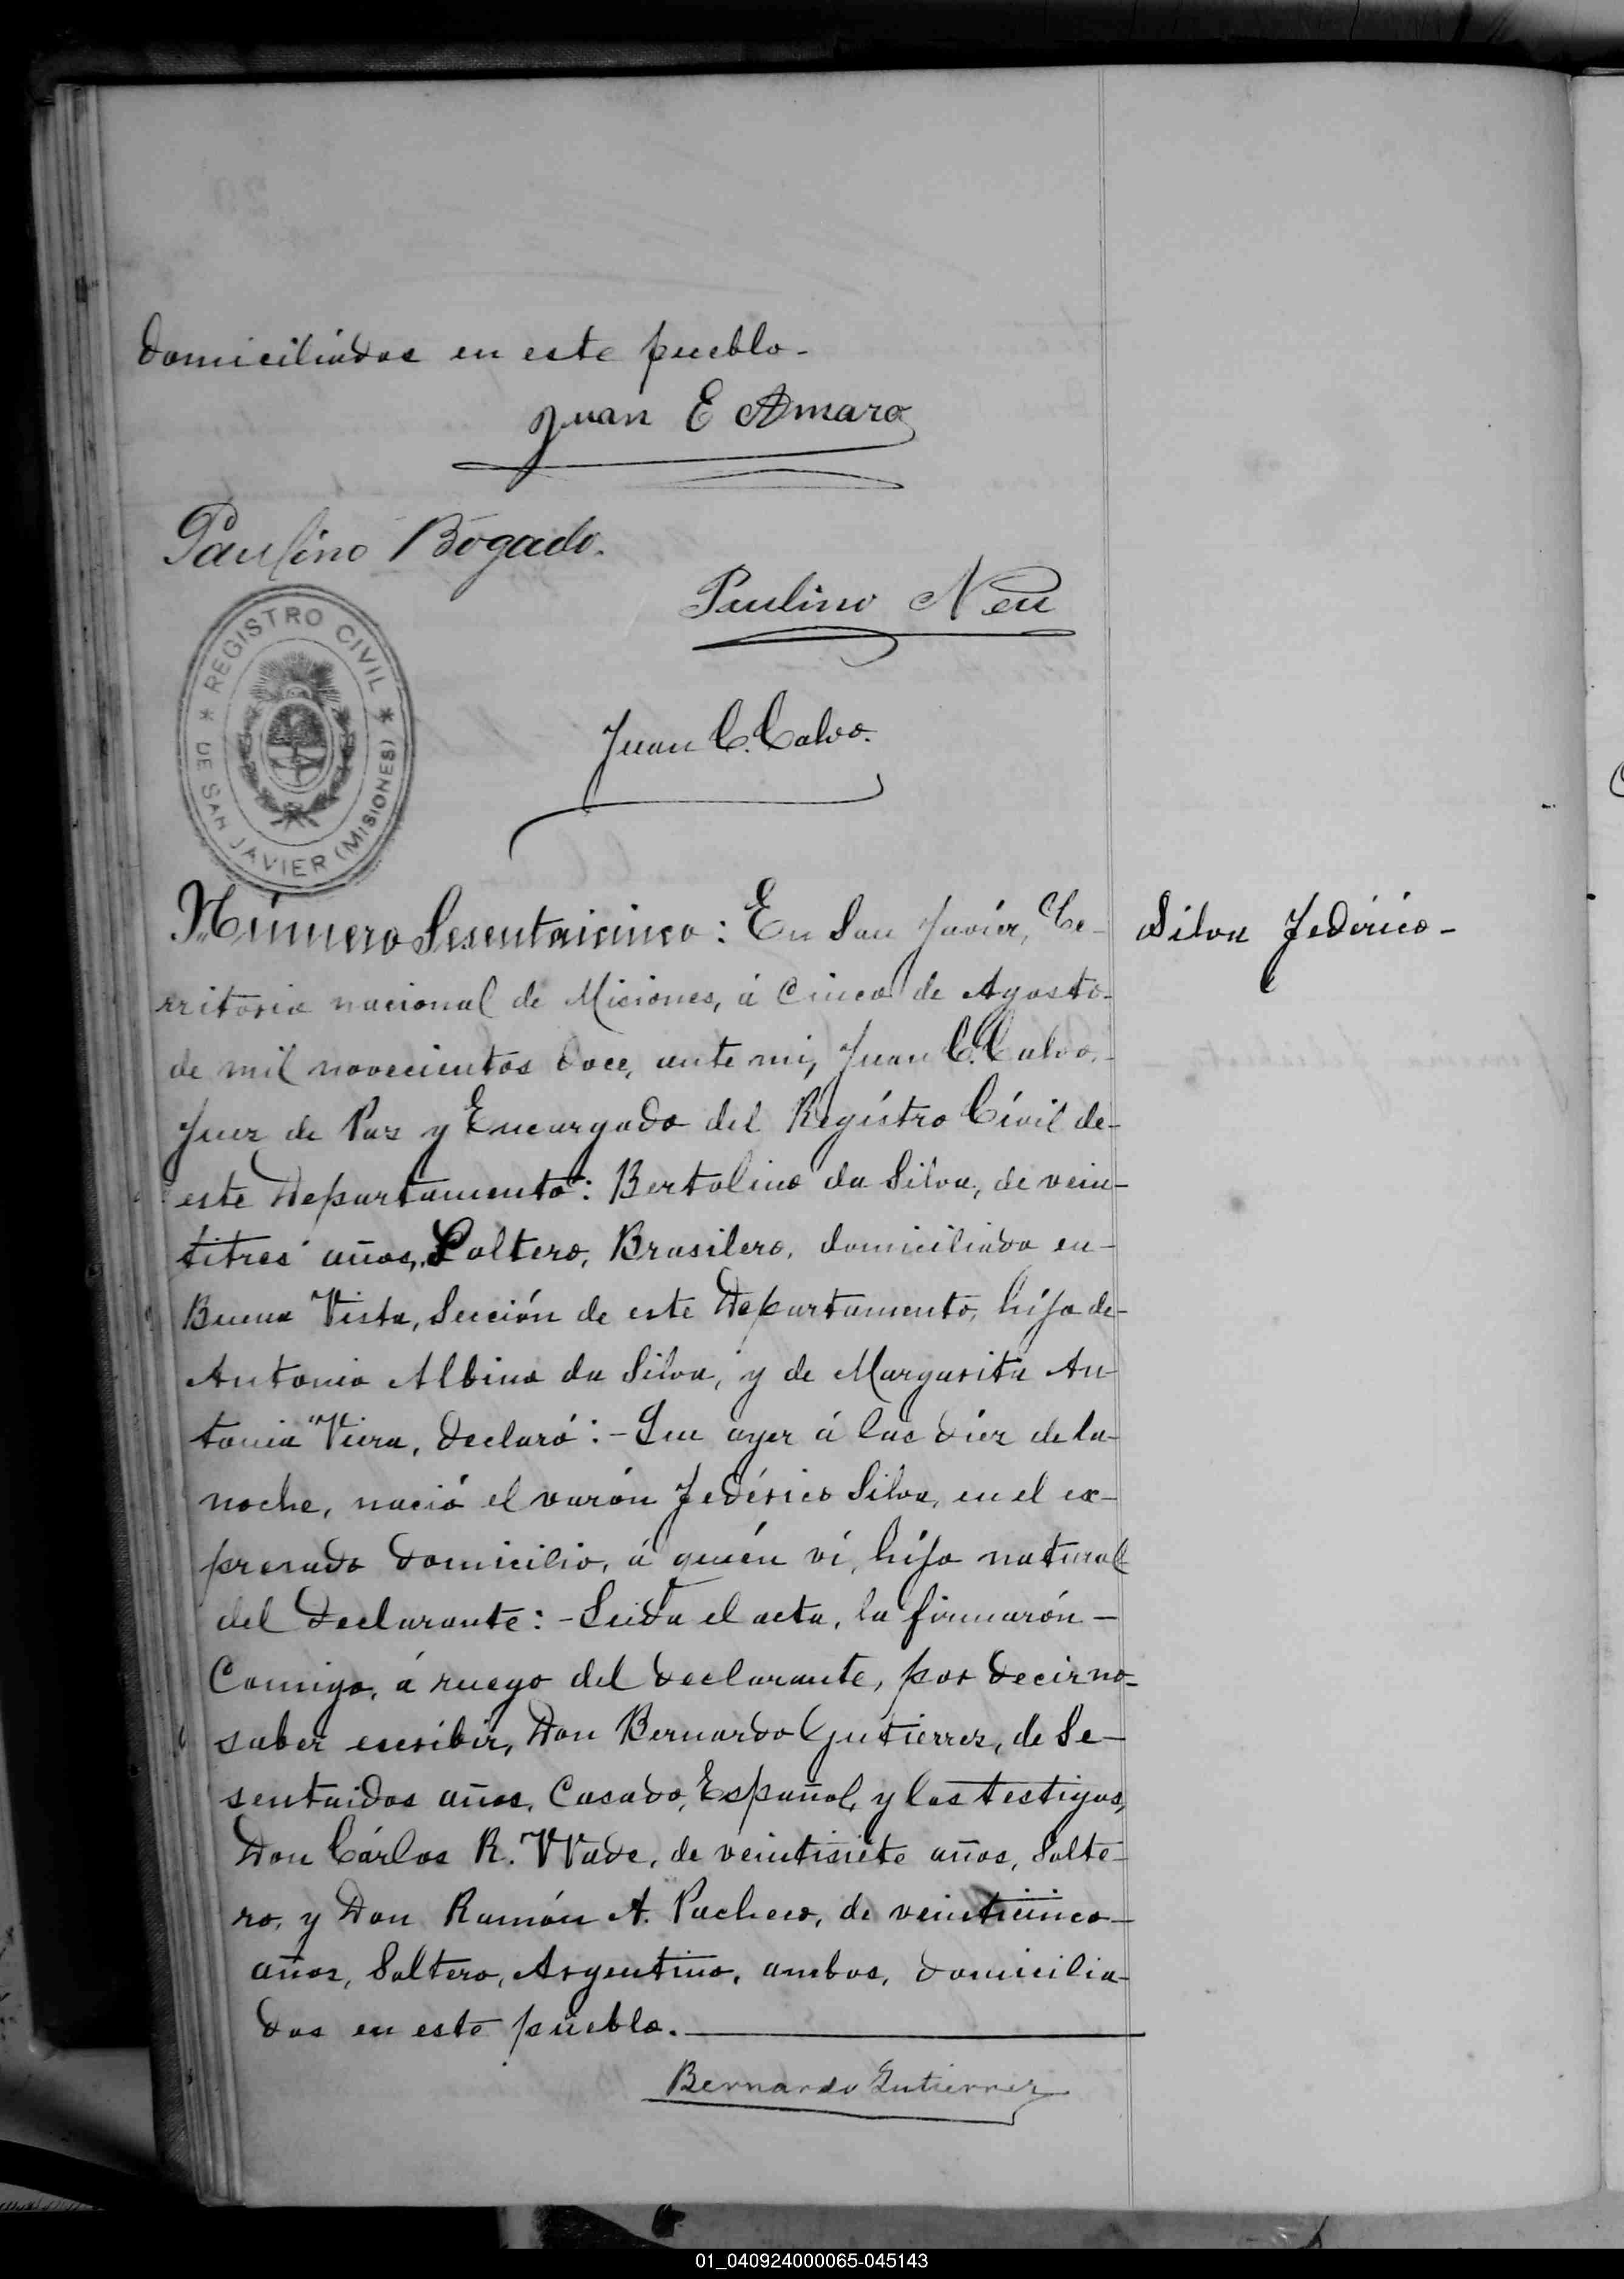 domiciliados en este pueblo-
Juan E Amaro
Paulino Bogado.
Paulino Neu
REGISTRO CIVIL
DE SAN JAVIER (MISIONES)
Juan C. Calvo.
Número Sesentaicinco: En San Javiér, Te-
Silva Federico-
rritorio nacional de Misiones, á cinco de Agosto-
de mil novecientos doce, ante mi, Juan C. Calvo.-
Juez de Paz y Encargado del Regístro Cívil de-
este Departamento: Bertolino da Silva, de vein-
titres años, Soltero, Brasilero, domiciliado en-
Buena Vista, Sección de este Departamento, hijo de-
Antonio Albino da Silva, y de Margarita An-
tonia Viera, declaró:- Que ayer á las diéz de la-
noche, nació el varón Fedérico Silva, en el ex-
presado domicilio, á quién ví, hijo natural
del declarante:- Leida el acta, la firmarón-
Comigo, á ruego del declarante, por decir no-
saber escribir, Don Bernardo Gutierrez, de Se-
sentaidos años, Casado, Español, y los testigos,
Don Cárlos R. Wade, de veintisiete años, Solte-
ro, y Don Ramón A. Pacheco, de veinticinco-
años, Soltero, Argentino, ambos, domicilia-
dos en este pueblo.
Bernardo Gutierrez
01_040924000065-045143